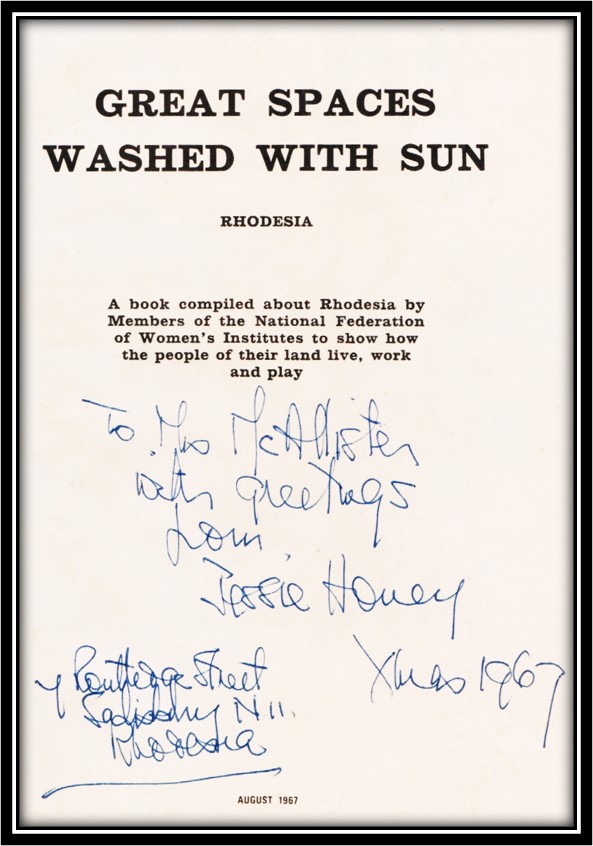 GREAT SPACES
WASHED WITH SUN
RHODESIA
A book compiled about Rhodesia by
Members of the National Federation
of Women's Institutes to show how
the people of their land live, work
and play
To Mrs McAllister
with greetings
from
Jessie Honey
Xmas 1967
7 Routledge Street
Salisbury N 11.
Rhodesia
AUGUST 1967